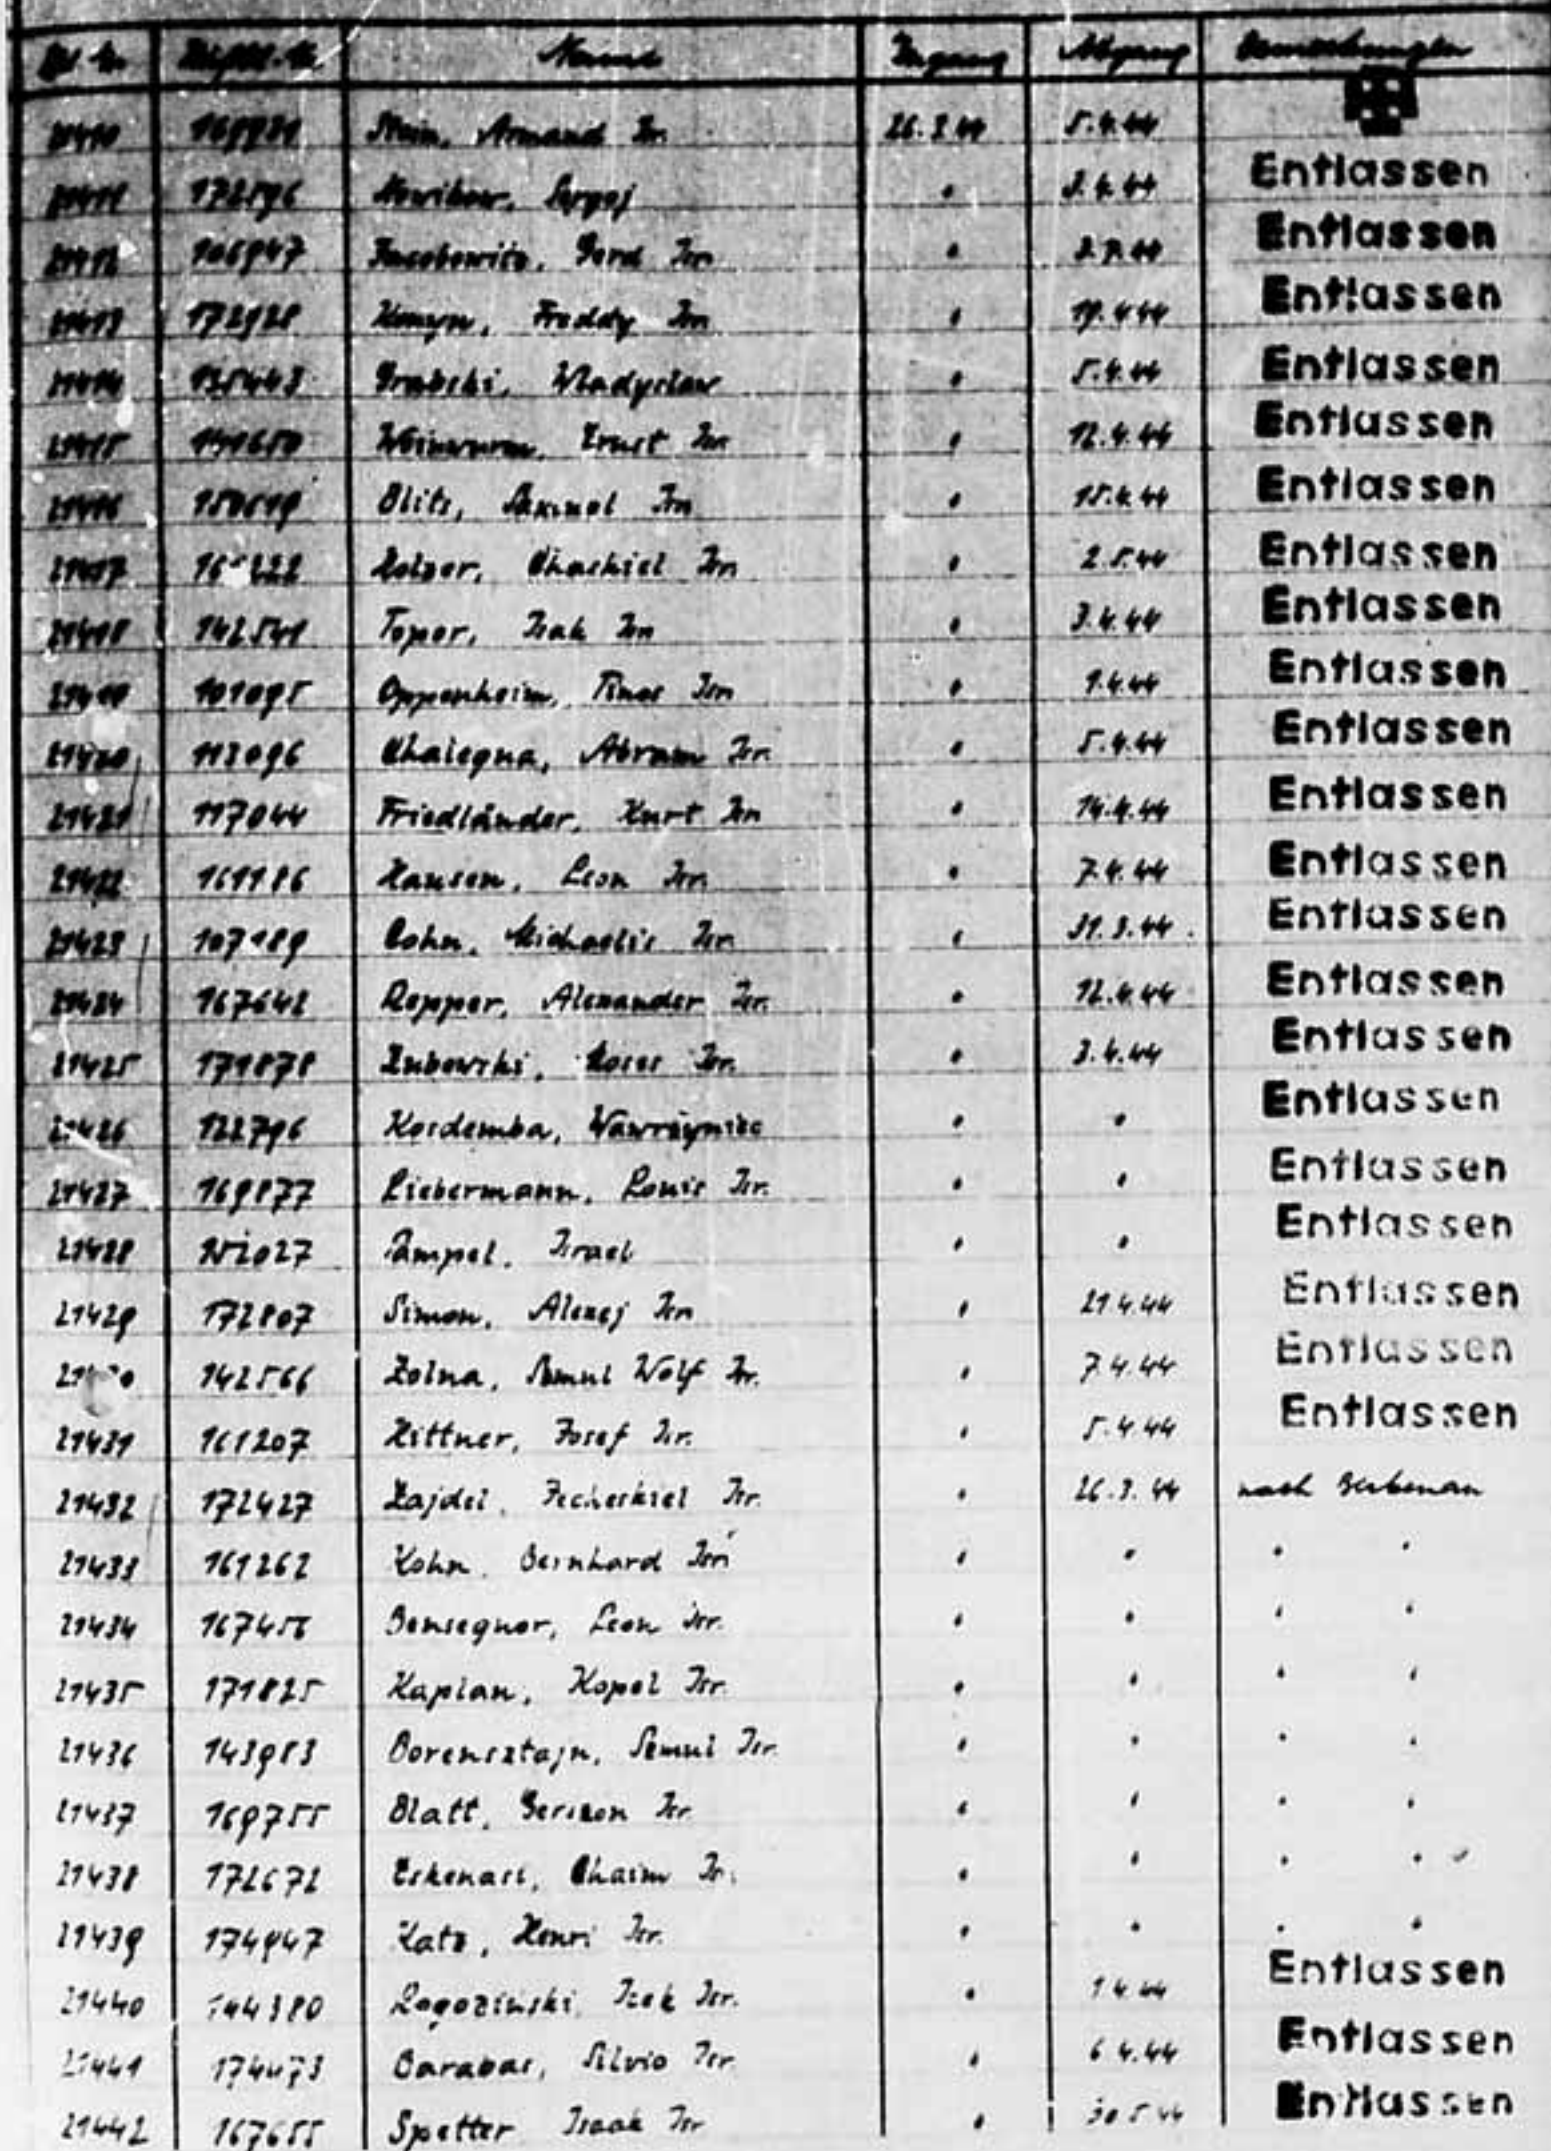 Lfd. Nr. Häftl.-Nr. Name Zugang Abgang Bemerkungen
21410 Armand Isr. 26.3.44 5.4.44
21411 172596 " 3.4.44 Entlassen
21412 106947 Jacobowitz, Gerd Isr. " Entlassen
21413 172928 Freddy Isr. " 19.4.44 Entlassen
21414 125443 Grabski, Wladyslaw " 5.4.44 Entlassen
21415 Weinwurm, Ernst Isr. " 12.4.44 Entlassen
21416 150619 Blitz, Isr. " 15.4.44 Entlassen
21417 Chaskiel Isr. " 2.5.44 Entlassen
21418 142541 Topor, Isak Isr. " 3.4.44 Entlassen
21419 101095 Oppenheim, Isr. " 1.4.44 Entlassen
21420 113096 Chalegna, Abram Isr. " 5.4.44 Entlassen
21421 117044 Friedländer, Kurt Isr. " 14.4.44 Entlassen
21422 161186 Hansen, Leon Isr. " 7.4.44 Entlassen
21423 107189 Cohn, Michaelis Isr. " 31.3.44. Entlassen
21424 167642 Repper, Alexander Isr. " 12.4.44 Entlassen
21425 171878 Zubowski, Moses Isr. " 3.4.44 Entlassen
21426 122796 Kordemba, " " Entlassen
21427 169877 Liebermann, Louis Isr. " " Entlassen
21428 Pampel, Israel " " Entlassen
21429 172807 Simon, Alexej Isr. " 21.4.44 Entlassen
142566 Zolna, Smul Wolf Isr. " 7.4.44 Entlassen
21431 161207 Hittner, Josef Isr. " 5.4.44 Entlassen
21432 172427 Zajdel, Isr. " 26.3.44 nach Birkenau
21433 161262 Kohn, Bernhard Isr. " " " "
21434 167456 Bensegnor, Leon Isr. " " " "
21435 171825 Kaplan, Kopel Isr. " " " "
21436 143983 Borensztajn, Smul Isr. " " " "
21437 169755 Blatt, Gerszon Isr. " " " "
21438 172672 Eskenasi, Chaim Isr. " " " "
21439 174947 Katz, Henri Isr. " " " "
21440 144380 Rogozinski, Icek Isr. " 1.4.44 Entlassen
21441 174473 Barabas, Silvio Isr. " 6.4.44 Entlassen
21442 167655 Spetter Isaak Isr. " 30.5.44 Entlassen